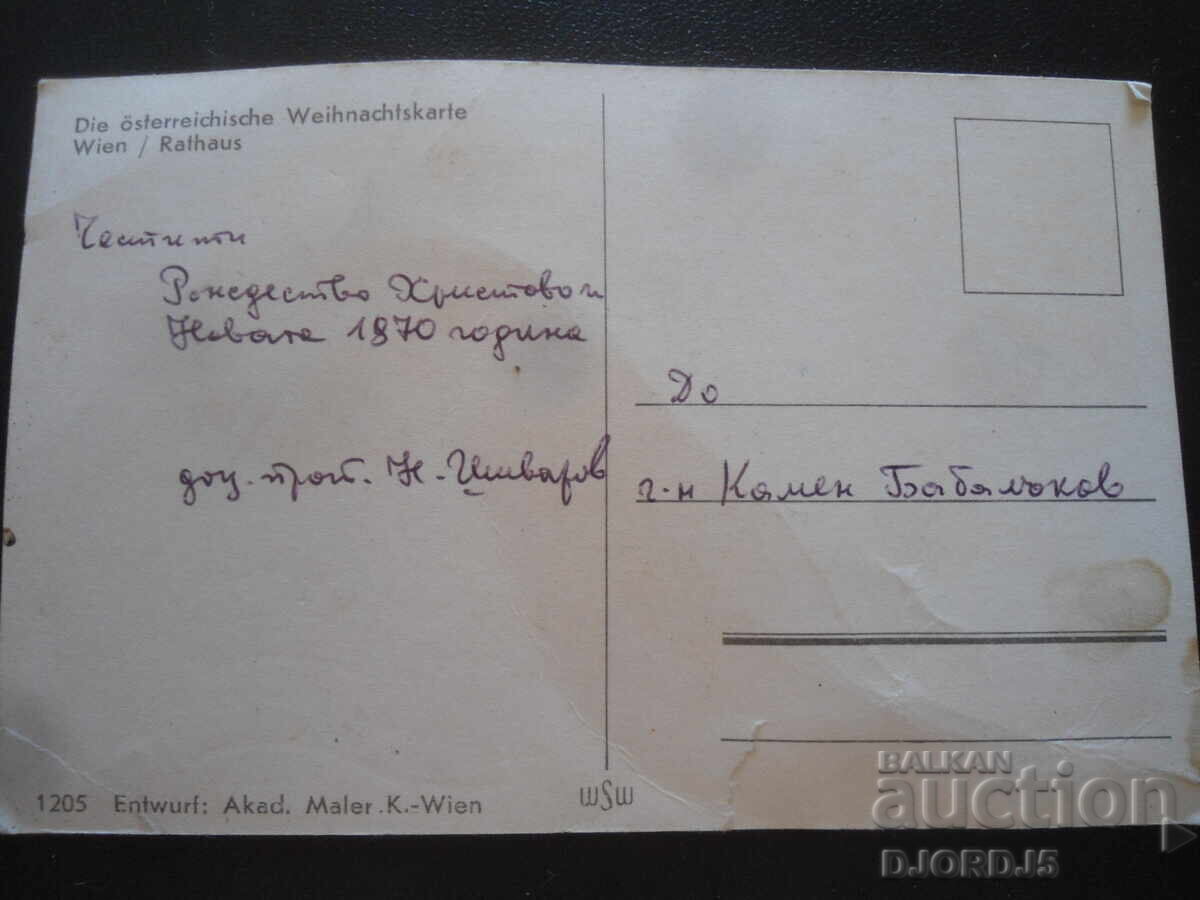 Die österreichische Weihnachtskarte
Wien / Rathaus
Честити
Рождество Христово и
Новата 1970 година
доц. прот. Н.
До
г-н Камен Бабалъков
1205 Entwurf: Akad. Maler K.-Wien
WSW
BALKAN
auction
DJORDJ5